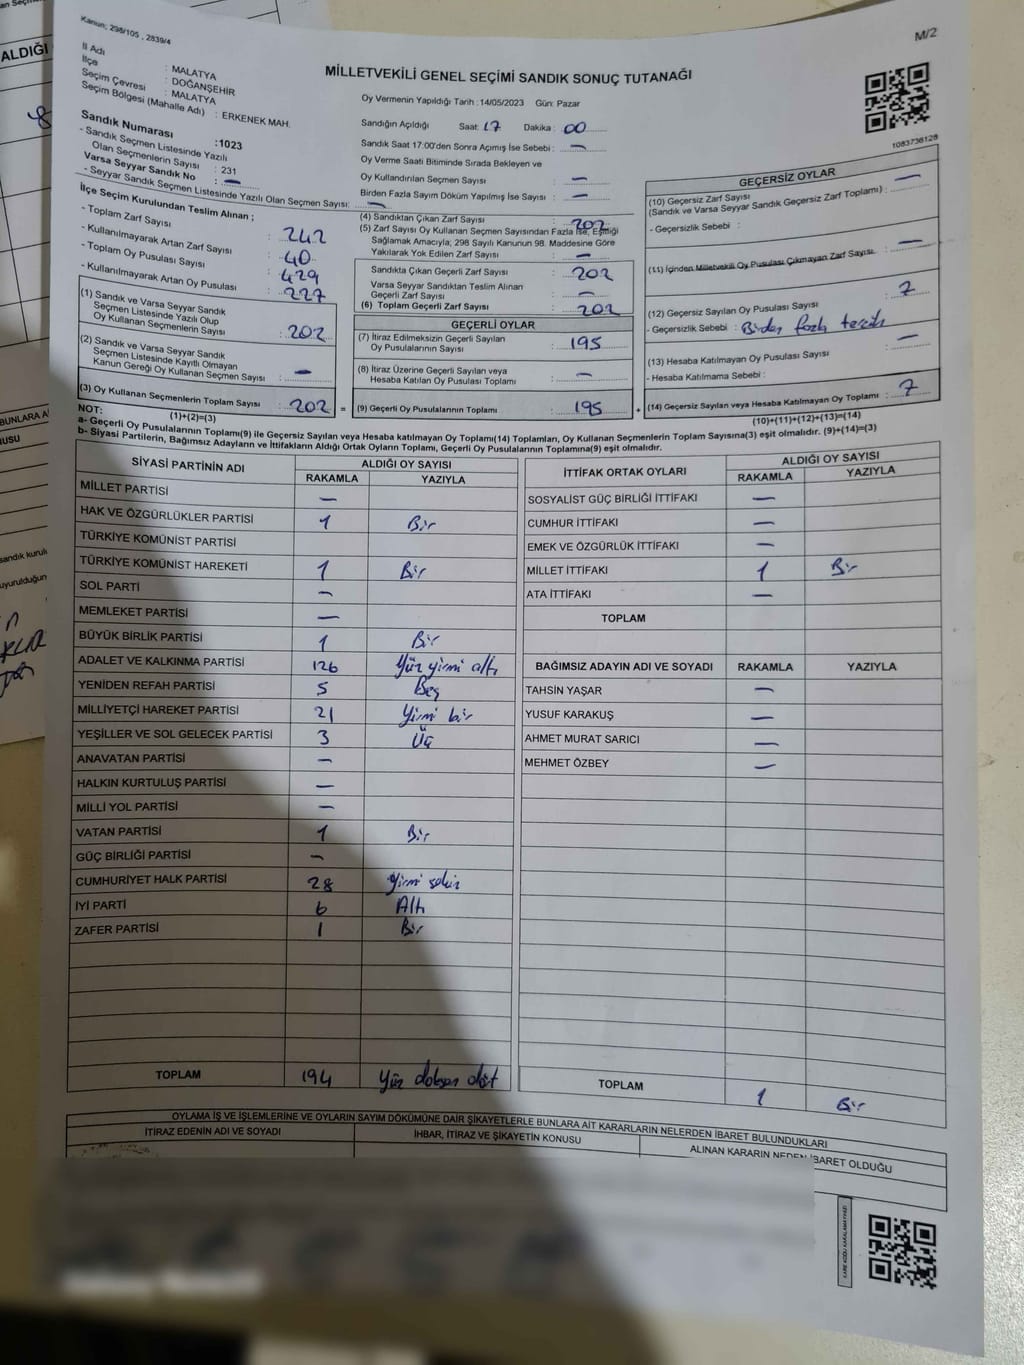 Kanun; 298/105 , 2839/4
M/2
İl Adı : MALATYA
İlçe : DOĞANŞEHİR
Seçim Çevresi : MALATYA
Seçim Bölgesi (Mahalle Adı) : ERKENEK MAH.
Sandık Numarası :1023
- Sandık Seçmen Listesinde Yazılı
Olan Seçmenlerin Sayısı : 231
Varsa Seyyar Sandık No : —
- Seyyar Sandık Seçmen Listesinde Yazılı Olan Seçmen Sayısı: —
MİLLETVEKİLİ GENEL SEÇİMİ SANDIK SONUÇ TUTANAĞI
Oy Vermenin Yapıldığı Tarih : 14/05/2023 Gün: Pazar
Sandığın Açıldığı Saat: 17 Dakika : 00
Sandık Saat 17:00'den Sonra Açımış İse Sebebi : —
Oy Verme Saati Bitiminde Sırada Bekleyen ve
Oy Kullandırılan Seçmen Sayısı : —
Birden Fazla Sayım Döküm Yapılmış İse Sayısı : —
1083736128
İlçe Seçim Kurulundan Teslim Alınan ;
- Toplam Zarf Sayısı : 242
- Kullanılmayarak Artan Zarf Sayısı : 40
- Toplam Oy Pusulası Sayısı : 429
- Kullanılmayarak Artan Oy Pusulası : 227
(1) Sandık ve Varsa Seyyar Sandık
Seçmen Listesinde Yazılı Olup
Oy Kullanan Seçmenlerin Sayısı : 202
(2) Sandık ve Varsa Seyyar Sandık
Seçmen Listesinde Kayıtlı Olmayan
Kanun Gereği Oy Kullanan Seçmen Sayısı : —
(3) Oy Kullanan Seçmenlerin Toplam Sayısı : 202 =
(1)+(2)=(3)
(4) Sandıktan Çıkan Zarf Sayısı : 202
(5) Zarf Sayısı Oy Kullanan Seçmen Sayısından Fazla İse, Eşitliği
Sağlamak Amacıyla; 298 Sayılı Kanunun 98. Maddesine Göre
Yakılarak Yok Edilen Zarf Sayısı : —
Sandıkta Çıkan Geçerli Zarf Sayısı : 202
Varsa Seyyar Sandıktan Teslim Alınan
Geçerli Zarf Sayısı : —
(6) Toplam Geçerli Zarf Sayısı : 202
GEÇERLİ OYLAR
(7) İtiraz Edilmeksizin Geçerli Sayılan
Oy Pusulalarının Sayısı : 195
(8) İtiraz Üzerine Geçerli Sayılan veya
Hesaba Katılan Oy Pusulası Toplamı : —
(9) Geçerli Oy Pusulalarının Toplamı : 195 +
GEÇERSİZ OYLAR
(10) Geçersiz Zarf Sayısı
(Sandık ve Varsa Seyyar Sandık Geçersiz Zarf Toplamı) : —
- Geçersizlik Sebebi :
(11) İçinden Milletvekili Oy Pusulası Çıkmayan Zarf Sayısı: —
(12) Geçersiz Sayılan Oy Pusulası Sayısı : 7
- Geçersizlik Sebebi : Birden fazla tercih
(13) Hesaba Katılmayan Oy Pusulası Sayısı : —
- Hesaba Katılmama Sebebi :
(14) Geçersiz Sayılan veya Hesaba Katılmayan Oy Toplamı : 7
(10)+(11)+(12)+(13)=(14)
NOT:
a- Geçerli Oy Pusulalarının Toplamı(9) ile Geçersiz Sayılan veya Hesaba katılmayan Oy Toplamı(14) Toplamları, Oy Kullanan Seçmenlerin Toplam Sayısına(3) eşit olmalıdır. (9)+(14)=(3)
b- Siyasi Partilerin, Bağımsız Adayların ve İttifakların Aldığı Ortak Oyların Toplamı, Geçerli Oy Pusulalarının Toplamına(9) eşit olmalıdır.
SİYASİ PARTİNİN ADI ALDIĞI OY SAYISI
RAKAMLA YAZIYLA
MİLLET PARTİSİ —
HAK VE ÖZGÜRLÜKLER PARTİSİ 1 Bir
TÜRKİYE KOMÜNİST PARTİSİ
TÜRKİYE KOMÜNİST HAREKETİ 1 Bir
SOL PARTİ —
MEMLEKET PARTİSİ —
BÜYÜK BİRLİK PARTİSİ 1 Bir
ADALET VE KALKINMA PARTİSİ 126 Yüz yirmi altı
YENİDEN REFAH PARTİSİ 5 Beş
MİLLİYETÇİ HAREKET PARTİSİ 21 Yirmi bir
YEŞİLLER VE SOL GELECEK PARTİSİ 3 Üç
ANAVATAN PARTİSİ —
HALKIN KURTULUŞ PARTİSİ —
MİLLİ YOL PARTİSİ —
VATAN PARTİSİ 1 Bir
GÜÇ BİRLİĞİ PARTİSİ —
CUMHURİYET HALK PARTİSİ 28 Yirmi sekiz
İYİ PARTİ 6 Altı
ZAFER PARTİSİ 1 Bir
TOPLAM 194 Yüz doksan dört
İTTİFAK ORTAK OYLARI ALDIĞI OY SAYISI
RAKAMLA YAZIYLA
SOSYALİST GÜÇ BİRLİĞİ İTTİFAKI —
CUMHUR İTTİFAKI —
EMEK VE ÖZGÜRLÜK İTTİFAKI —
MİLLET İTTİFAKI 1 Bir
ATA İTTİFAKI —
TOPLAM
BAĞIMSIZ ADAYIN ADI VE SOYADI RAKAMLA YAZIYLA
TAHSİN YAŞAR —
YUSUF KARAKUŞ —
AHMET MURAT SARICI —
MEHMET ÖZBEY —
TOPLAM 1 Bir
OYLAMA İŞ VE İŞLEMLERİNE VE OYLARIN SAYIM DÖKÜMÜNE DAİR ŞİKAYETLERLE BUNLARA AİT KARARLARIN NELERDEN İBARET BULUNDUKLARI
İTİRAZ EDENİN ADI VE SOYADI
İHBAR, İTİRAZ VE ŞİKAYETİN KONUSU
ALINAN KARARIN NEDEN İBARET OLDUĞU
KARE KODU KARALAMAYINIZ!
ALDIĞI